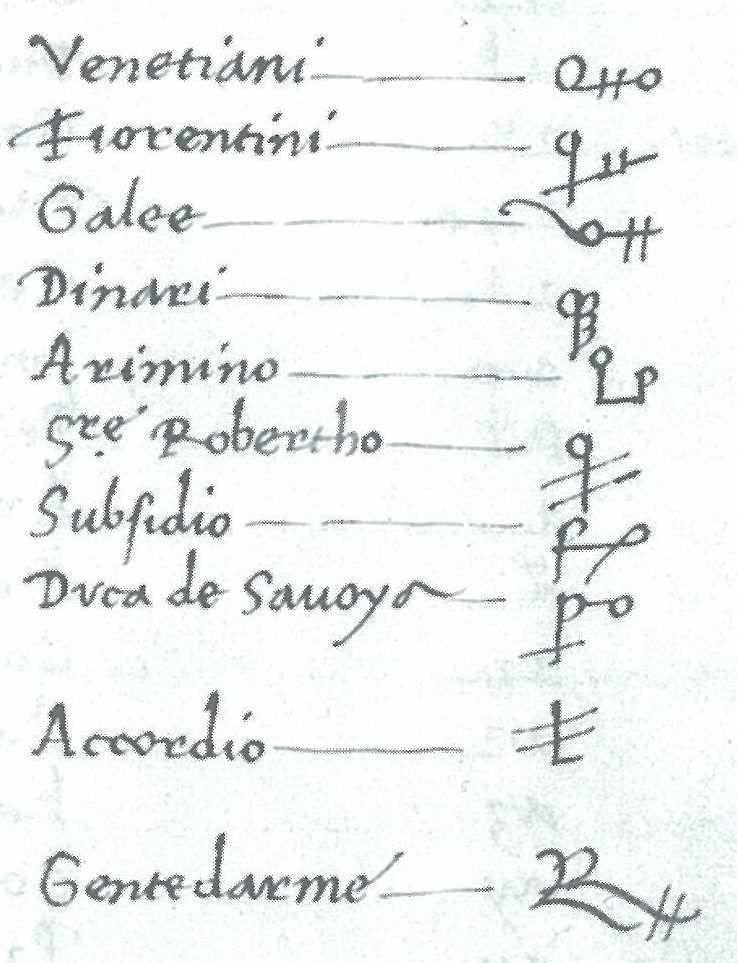 Venetiani
Fiorentini
Galee
Dinari
Arimino
Sre Robertho
Subſidio
Dvca de Sauoya
Accordio
Gentedarme